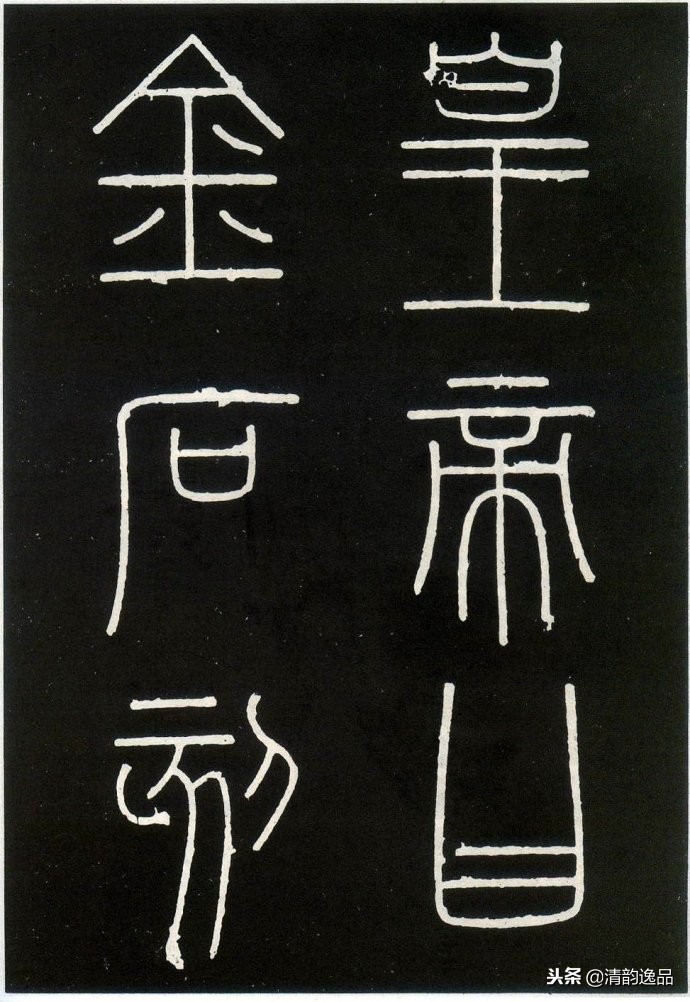 皇帝曰
金石刻
头条 @清韵逸品